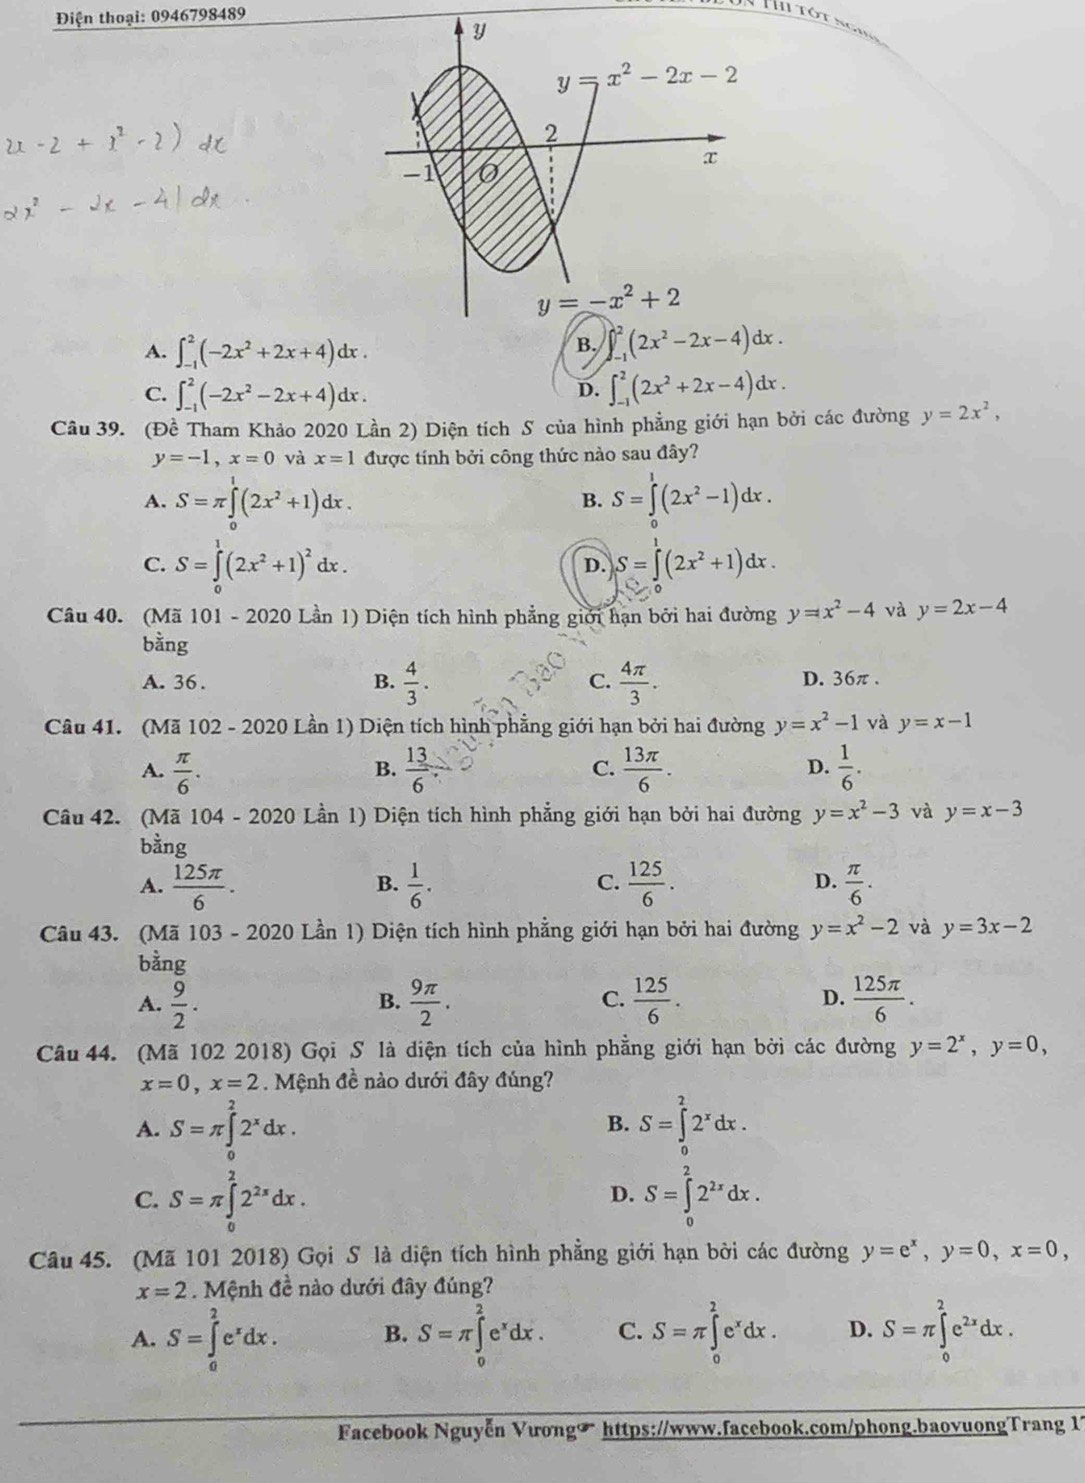 Điện thoại: 0946798489
THI TỐT
y
y = x² − 2x − 2
2
x
−1
O
2x - 2 + x² - 2) dx
2x² - 2x - 4| dx
y = −x² + 2
A. ∫₋₁² (−2x² + 2x + 4) dx . B. ∫₋₁² (2x² − 2x − 4) dx .
C. ∫₋₁² (−2x² − 2x + 4) dx . D. ∫₋₁² (2x² + 2x − 4) dx .
Câu 39. (Đề Tham Khảo 2020 Lần 2) Diện tích S của hình phẳng giới hạn bởi các đường y = 2x² ,
y = −1 , x = 0 và x = 1 được tính bởi công thức nào sau đây?
A. S = π∫₀¹ (2x² + 1) dx . B. S = ∫₀¹ (2x² − 1) dx .
C. S = ∫₀¹ (2x² + 1)² dx . D. S = ∫₀¹ (2x² + 1) dx .
Câu 40. (Mã 101 - 2020 Lần 1) Diện tích hình phẳng giới hạn bởi hai đường y = x² − 4 và y = 2x − 4
bằng
A. 36 . B. 4/3 . C. 4π/3 . D. 36π .
Câu 41. (Mã 102 - 2020 Lần 1) Diện tích hình phẳng giới hạn bởi hai đường y = x² − 1 và y = x − 1
A. π/6 . B. 13/6 . C. 13π/6 . D. 1/6 .
Câu 42. (Mã 104 - 2020 Lần 1) Diện tích hình phẳng giới hạn bởi hai đường y = x² − 3 và y = x − 3
bằng
A. 125π/6 . B. 1/6 . C. 125/6 . D. π/6 .
Câu 43. (Mã 103 - 2020 Lần 1) Diện tích hình phẳng giới hạn bởi hai đường y = x² − 2 và y = 3x − 2
bằng
A. 9/2 . B. 9π/2 . C. 125/6 . D. 125π/6 .
Câu 44. (Mã 102 2018) Gọi S là diện tích của hình phẳng giới hạn bởi các đường y = 2ˣ , y = 0 ,
x = 0 , x = 2 . Mệnh đề nào dưới đây đúng?
A. S = π∫₀² 2ˣ dx . B. S = ∫₀² 2ˣ dx .
C. S = π∫₀² 2²ˣ dx . D. S = ∫₀² 2²ˣ dx .
Câu 45. (Mã 101 2018) Gọi S là diện tích hình phẳng giới hạn bởi các đường y = eˣ , y = 0 , x = 0 ,
x = 2 . Mệnh đề nào dưới đây đúng?
A. S = ∫₀² eˣ dx . B. S = π∫₀² eˣ dx . C. S = π∫₀² eˣ dx . D. S = π∫₀² e²ˣ dx .
Facebook Nguyễn Vương☞ https://www.facebook.com/phong.baovuongTrang 17